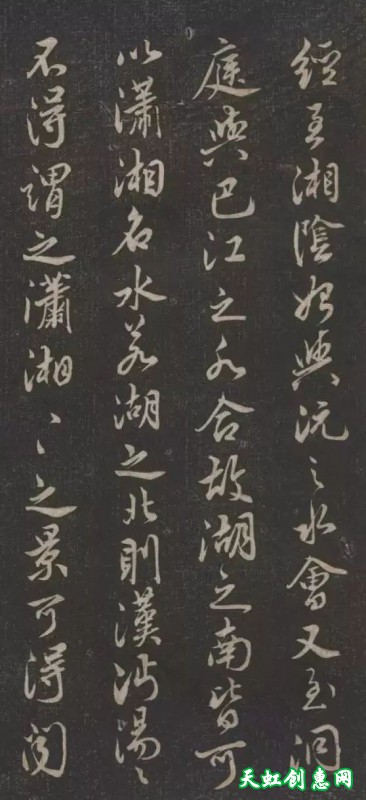 經至湘陰始與沅之水會又至洞
庭與巴江之水合故湖之南皆可
以瀟湘名水若湖之北則漢沔湯〻
不得謂之瀟湘〻之景可得聞
天虹创惠网